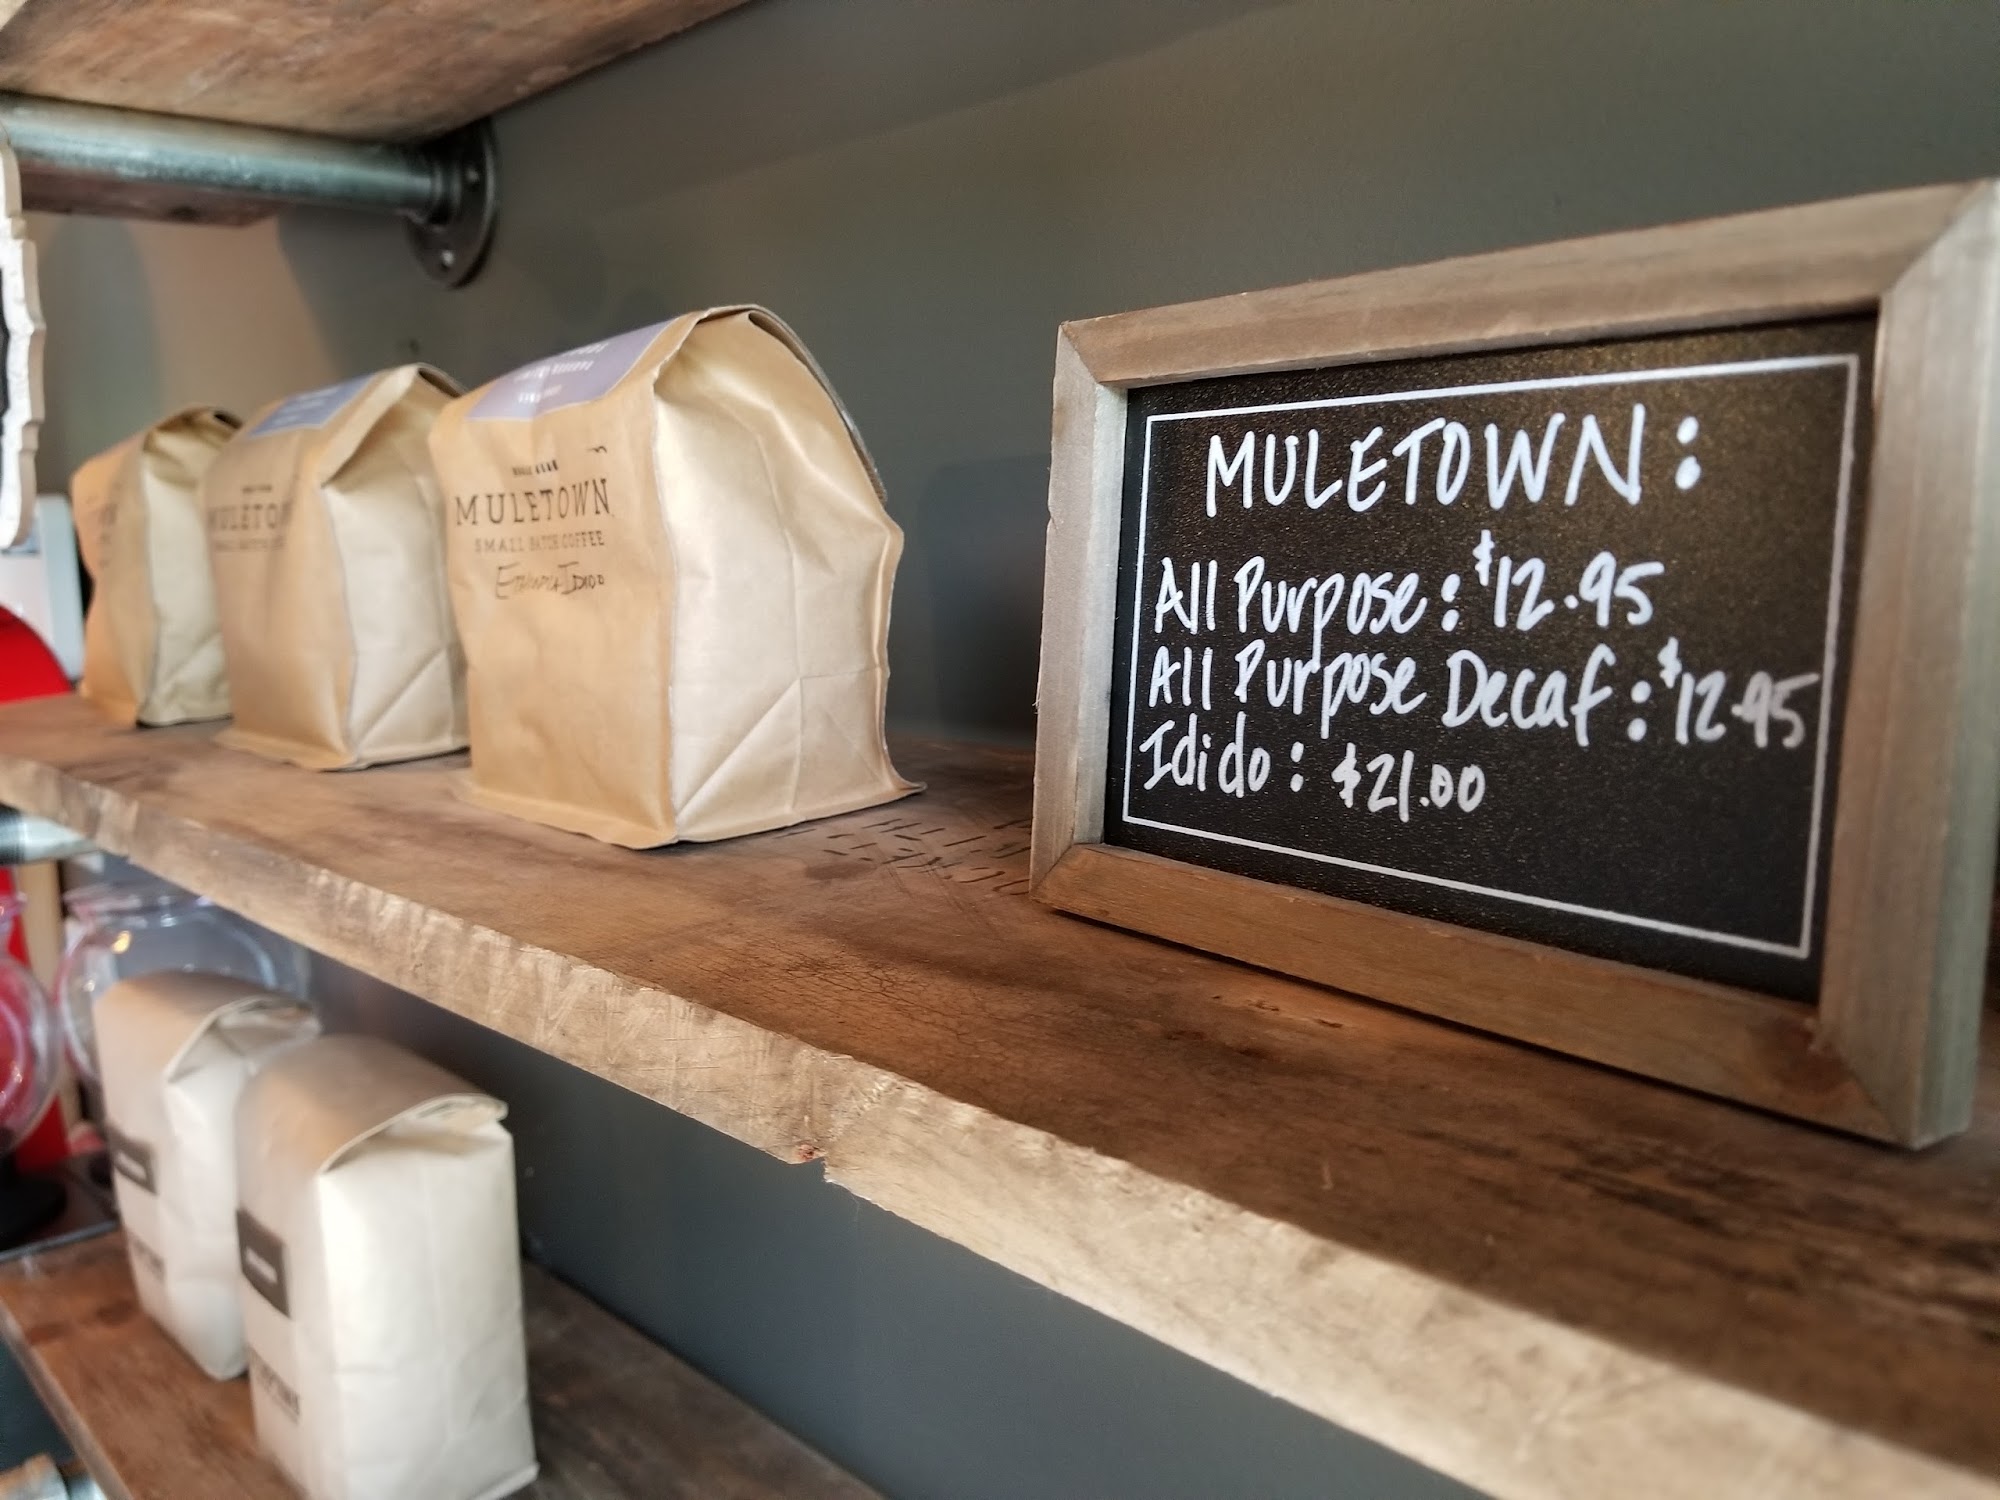 MULETOWN:
All Purpose: $12.95
All Purpose Decaf: $12.95
Idido: $21.00
WHOLE BEAN
MULETOWN
SMALL BATCH COFFEE
Ethiopia Idido
MULETO
SMALL BATCH